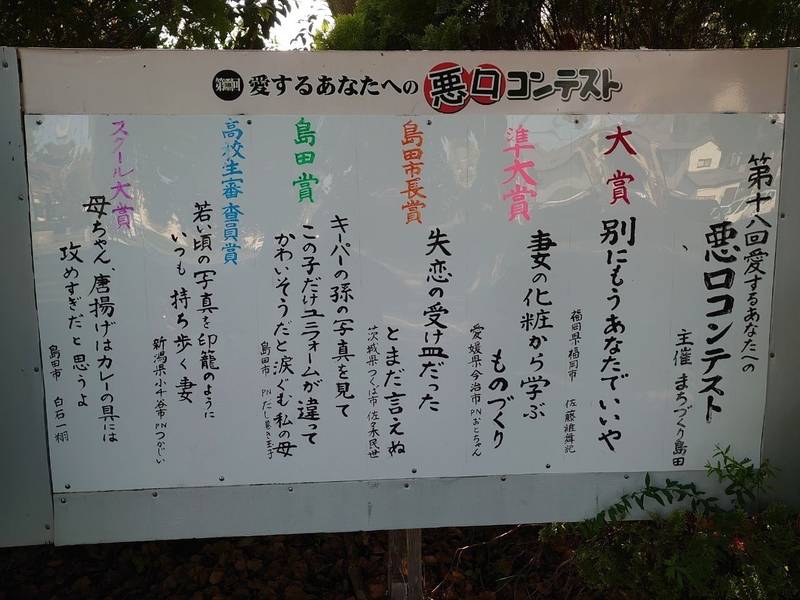 愛するあなたへの悪口コンテスト
第十八回愛するあなたへの
悪口コンテスト
主催 まちづくり島田
大賞
別にもうあなたでいいや
福岡県福岡市 佐藤雄舞記
準大賞
妻の化粧から学ぶ
ものづくり
愛媛県今治市 PNおとちゃん
島田市長賞
失恋の受け皿だった
とまだ言えぬ
茨城県つくば市 佐多木民世
島田賞
キーパーの孫の写真を見て
この子だけユニフォームが違って
かわいそうだと涙ぐむ私の母
島田市 PNだし巻き玉子
高校生審査員賞
若い頃の写真を印籠のように
いつも持ち歩く妻
新潟県小千谷市 PNつかじい
スクール大賞
母ちゃん、唐揚げはカレーの具には
攻めすぎだと思うよ
島田市 白石一栩